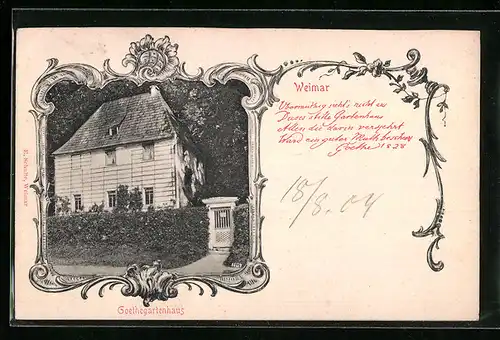 Weimar
Übermüthig sieht's nicht aus
Dieses stille Gartenhaus
Allen die darin verkehrt
Ward ein guter Muth bescheert
Goethe 1828
18/8. 04
Goethegartenhaus